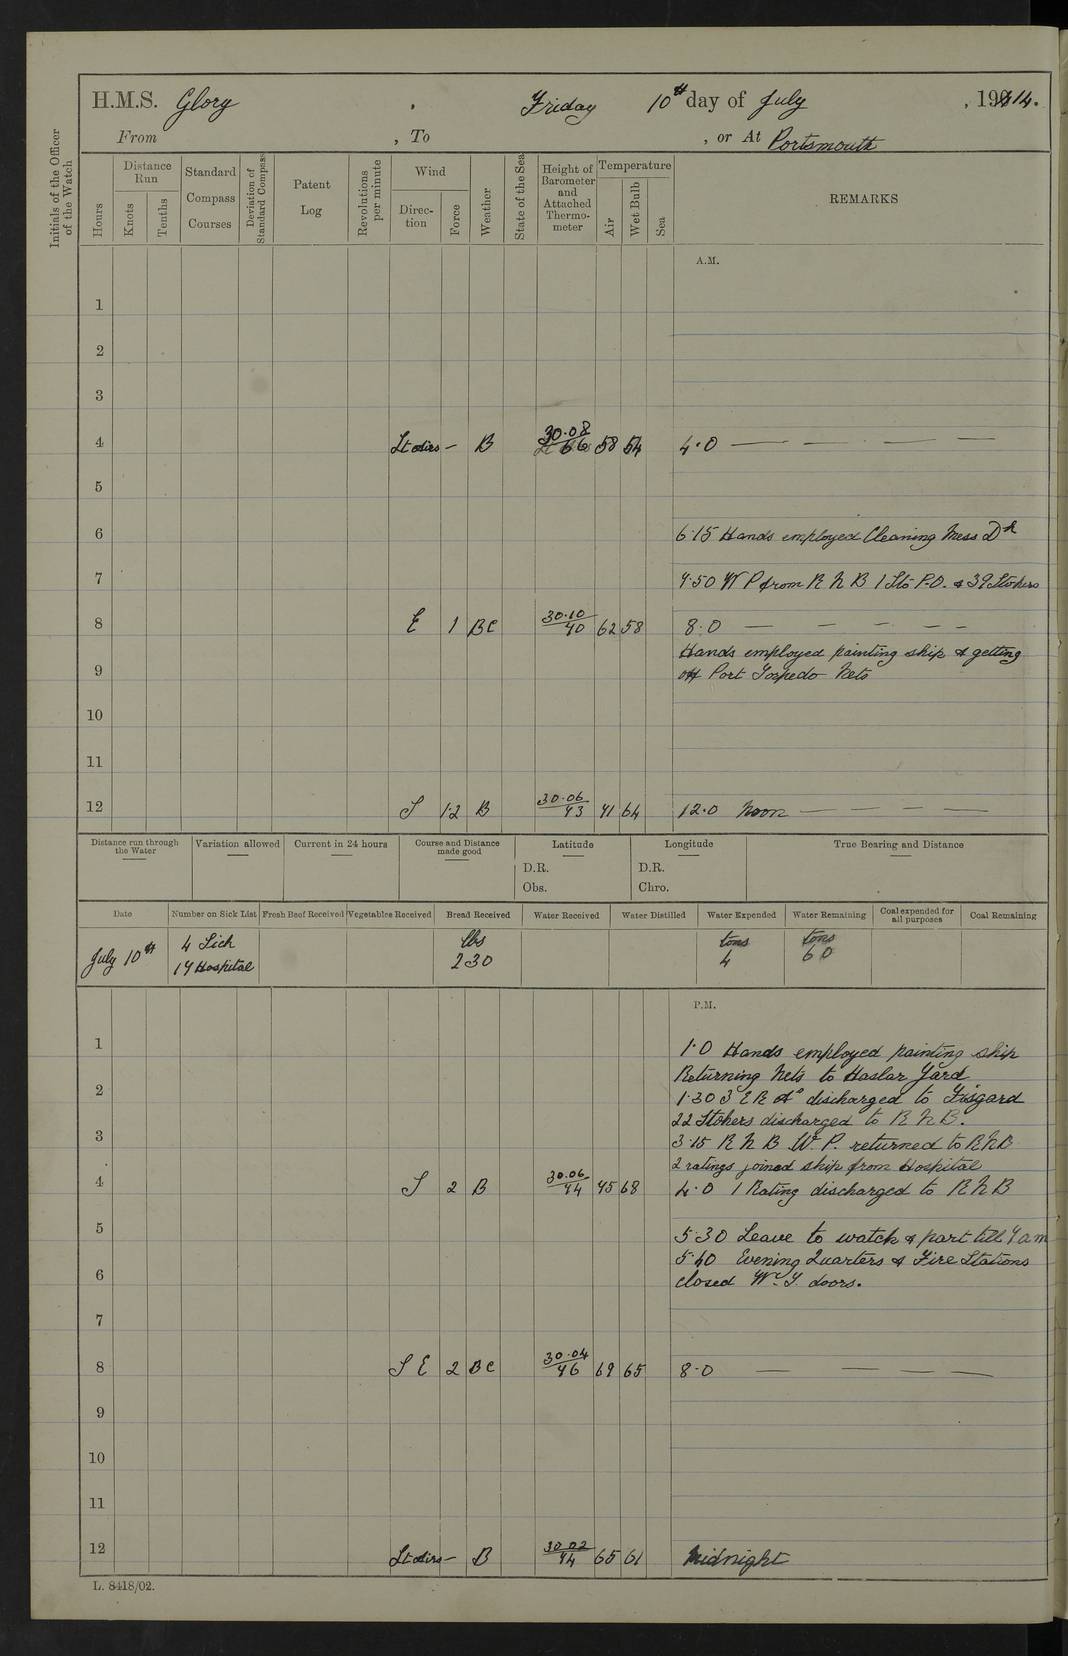 H.M.S. Glory . Friday 10th day of July , 1914.
From , To , or At Portsmouth
Initials of the Officer of the Watch
Hours
Distance Run
Knots
Tenths
Standard Compass Courses
Deviation of Standard Compass
Patent Log
Revolutions per minute
Wind
Direction
Force
Weather
State of the Sea
Height of Barometer and Attached Thermometer
Temperature
Air
Wet Bulb
Sea
REMARKS
A.M.
1
2
3
4 Lt airs — B 30.08 66 58 54 4.0 — — — —
5
6 6.15 Hands employed Cleaning Mess Dk
7 7.50 W P from R N B 1 Sto P.O. & 39 Stokers
8 E 1 BC 30.10 70 62 58 8.0 — — — — —
Hands employed painting ship & getting
9 off Port Torpedo Nets
10
11
12 S 1.2 B 30.06 73 71 64 12.0 Noon — — — —
Distance run through the Water
Variation allowed
Current in 24 hours
Course and Distance made good
Latitude
D.R.
Obs.
Longitude
D.R.
Chro.
True Bearing and Distance
Date
Number on Sick List
Fresh Beef Received
Vegetables Received
Bread Received
Water Received
Water Distilled
Water Expended
Water Remaining
Coal expended for all purposes
Coal Remaining
July 10th
4 Sick
17 Hospital
lbs
230
tons
4
tons
60
P.M.
1 1.0 Hands employed painting ship
Returning Nets to Haslar Yard
2 1.30 3 E R As discharged to Fisgard
22 Stokers discharged to R N B.
3 3.15 R N B W. P. returned to R N B
2 ratings joined ship from Hospital
4 S 2 B 30.06 74 75 68 4.0 1 Rating discharged to R N B
5 5.30 Leave to watch & part till 7 am
5.40 Evening Quarters & Fire Stations
6 closed W. T. doors.
7
8 S E 2 BC 30.04 76 69 65 8.0 — — — —
9
10
11
12 Lt airs — B 30.02 74 65 61 Midnight
L. 8418/02.